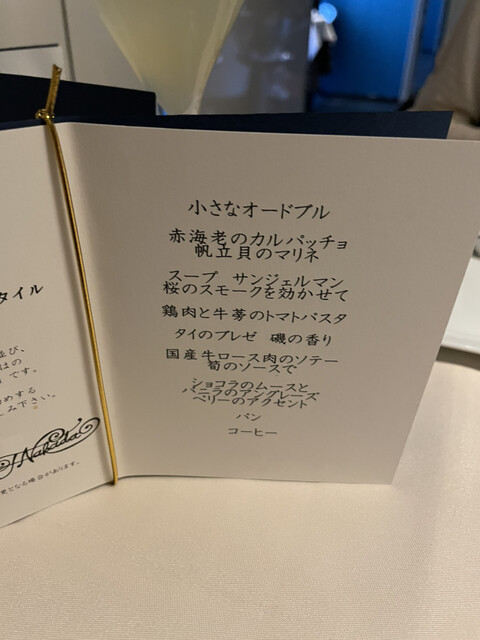 タイル
並び、
はの
です。
めする
み下さい。
Nakada
更となる場合があります。
小さなオードブル
赤海老のカルパッチョ
帆立貝のマリネ
スープ　サンジェルマン
桜のスモークを効かせて
鶏肉と牛蒡のトマトパスタ
タイのブレゼ　磯の香り
国産牛ロース肉のソテー
筍のソースで
ショコラのムースと
バニラのアングレーズ
ベリーのアクセント
パン
コーヒー